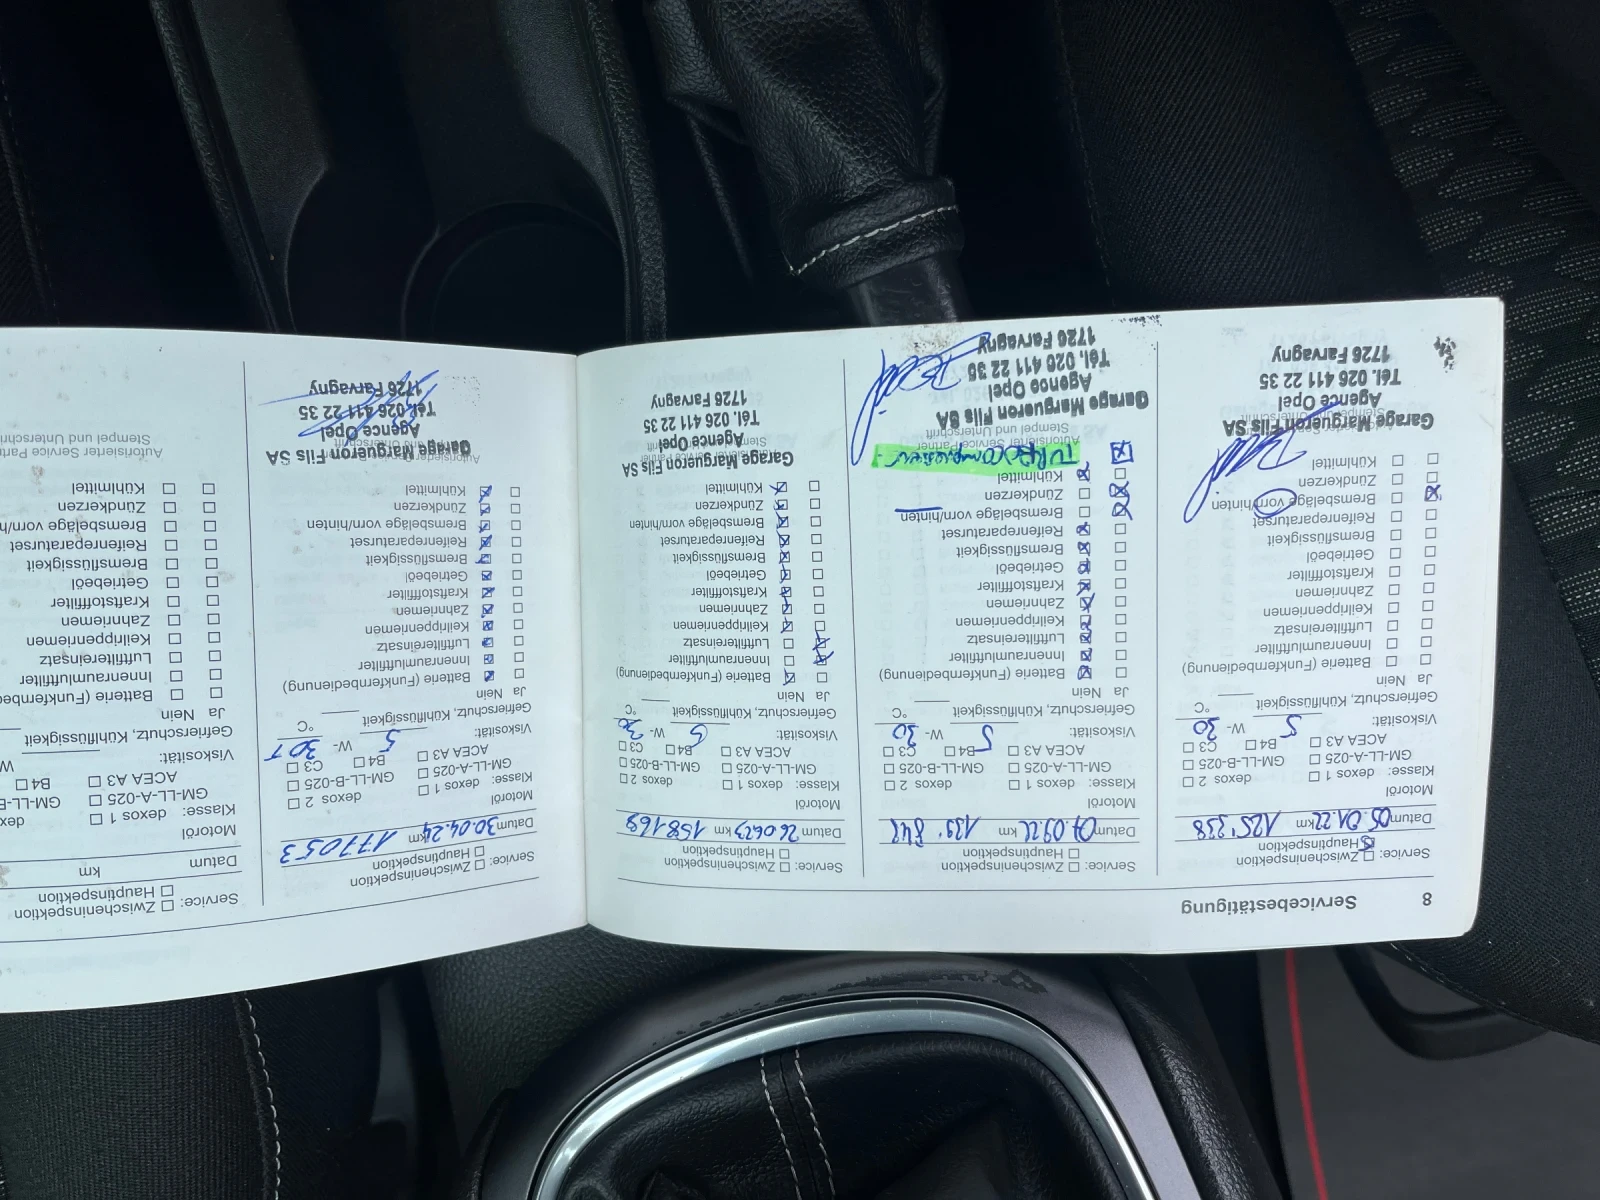 8 Servicebestätigung
Service: Zwischeninspektion
Hauptinspektion
Datum 05.01.22 km 125'238
Motoröl
Klasse: dexos 1 dexos 2
GM-LL-A-025 GM-LL-B-025
ACEA A3 B4 C3
Viskosität: 5 W- 30
Gefrierschutz, Kühlflüssigkeit °C
Ja Nein
Batterie (Funkfernbedienung)
Innenraumluftfilter
Luftfiltereinsatz
Keilrippenriemen
Zahnriemen
Kraftstofffilter
Getriebeöl
Bremsflüssigkeit
Reifenreparaturset
Bremsbeläge vorn/hinten
Zündkerzen
Kühlmittel
Garage Margueron Fils SA
Agence Opel
Tél. 026 411 22 35
1726 Farvagny
Service: Zwischeninspektion
Hauptinspektion
Datum 07.09.22 km 139'842
Motoröl
Klasse: dexos 1 dexos 2
GM-LL-A-025 GM-LL-B-025
ACEA A3 B4 C3
Viskosität: 5 W- 30
Gefrierschutz, Kühlflüssigkeit °C
Ja Nein
Batterie (Funkfernbedienung)
Innenraumluftfilter
Luftfiltereinsatz
Keilrippenriemen
Zahnriemen
Kraftstofffilter
Getriebeöl
Bremsflüssigkeit
Reifenreparaturset
Bremsbeläge vorn/hinten
Zündkerzen
Kühlmittel
Turbocompresseur
Autorisierter Service Partner
Stempel und Unterschrift
Garage Margueron Fils SA
Agence Opel
Tél. 026 411 22 35
1726 Farvagny
Service: Zwischeninspektion
Hauptinspektion
Datum 26.06.23 km 158168
Motoröl
Klasse: dexos 1 dexos 2
GM-LL-A-025 GM-LL-B-025
ACEA A3 B4 C3
Viskosität: 5 W- 30
Gefrierschutz, Kühlflüssigkeit °C
Ja Nein
Batterie (Funkfernbedienung)
Innenraumluftfilter
Luftfiltereinsatz
Keilrippenriemen
Zahnriemen
Kraftstofffilter
Getriebeöl
Bremsflüssigkeit
Reifenreparaturset
Bremsbeläge vorn/hinten
Zündkerzen
Kühlmittel
Garage Margueron Fils SA
Agence Opel
Tél. 026 411 22 35
1726 Farvagny
Service: Zwischeninspektion
Hauptinspektion
Datum 30.04.24 km 177053
Motoröl
Klasse: dexos 1 dexos 2
GM-LL-A-025 GM-LL-B-025
ACEA A3 B4 C3
Viskosität: 5 W- 30
Gefrierschutz, Kühlflüssigkeit °C
Ja Nein
Batterie (Funkfernbedienung)
Innenraumluftfilter
Luftfiltereinsatz
Keilrippenriemen
Zahnriemen
Kraftstofffilter
Getriebeöl
Bremsflüssigkeit
Reifenreparaturset
Bremsbeläge vorn/hinten
Zündkerzen
Kühlmittel
Garage Margueron Fils SA
Agence Opel
Tél. 026 411 22 35
1726 Farvagny
Service: Zwischeninspektion
Hauptinspektion
Datum km
Motoröl
Klasse: dexos 1 dex
GM-LL-A-025 GM-LL-B
ACEA A3 B4
Viskosität: W
Gefrierschutz, Kühlflüssigkeit
Ja Nein
Batterie (Funkfernbed
Innenraumluftfilter
Luftfiltereinsatz
Keilrippenriemen
Zahnriemen
Kraftstofffilter
Getriebeöl
Bremsflüssigkeit
Reifenreparaturset
Bremsbeläge vorn/h
Zündkerzen
Kühlmittel
Autorisierter Service Partn
Stempel und Unterschri